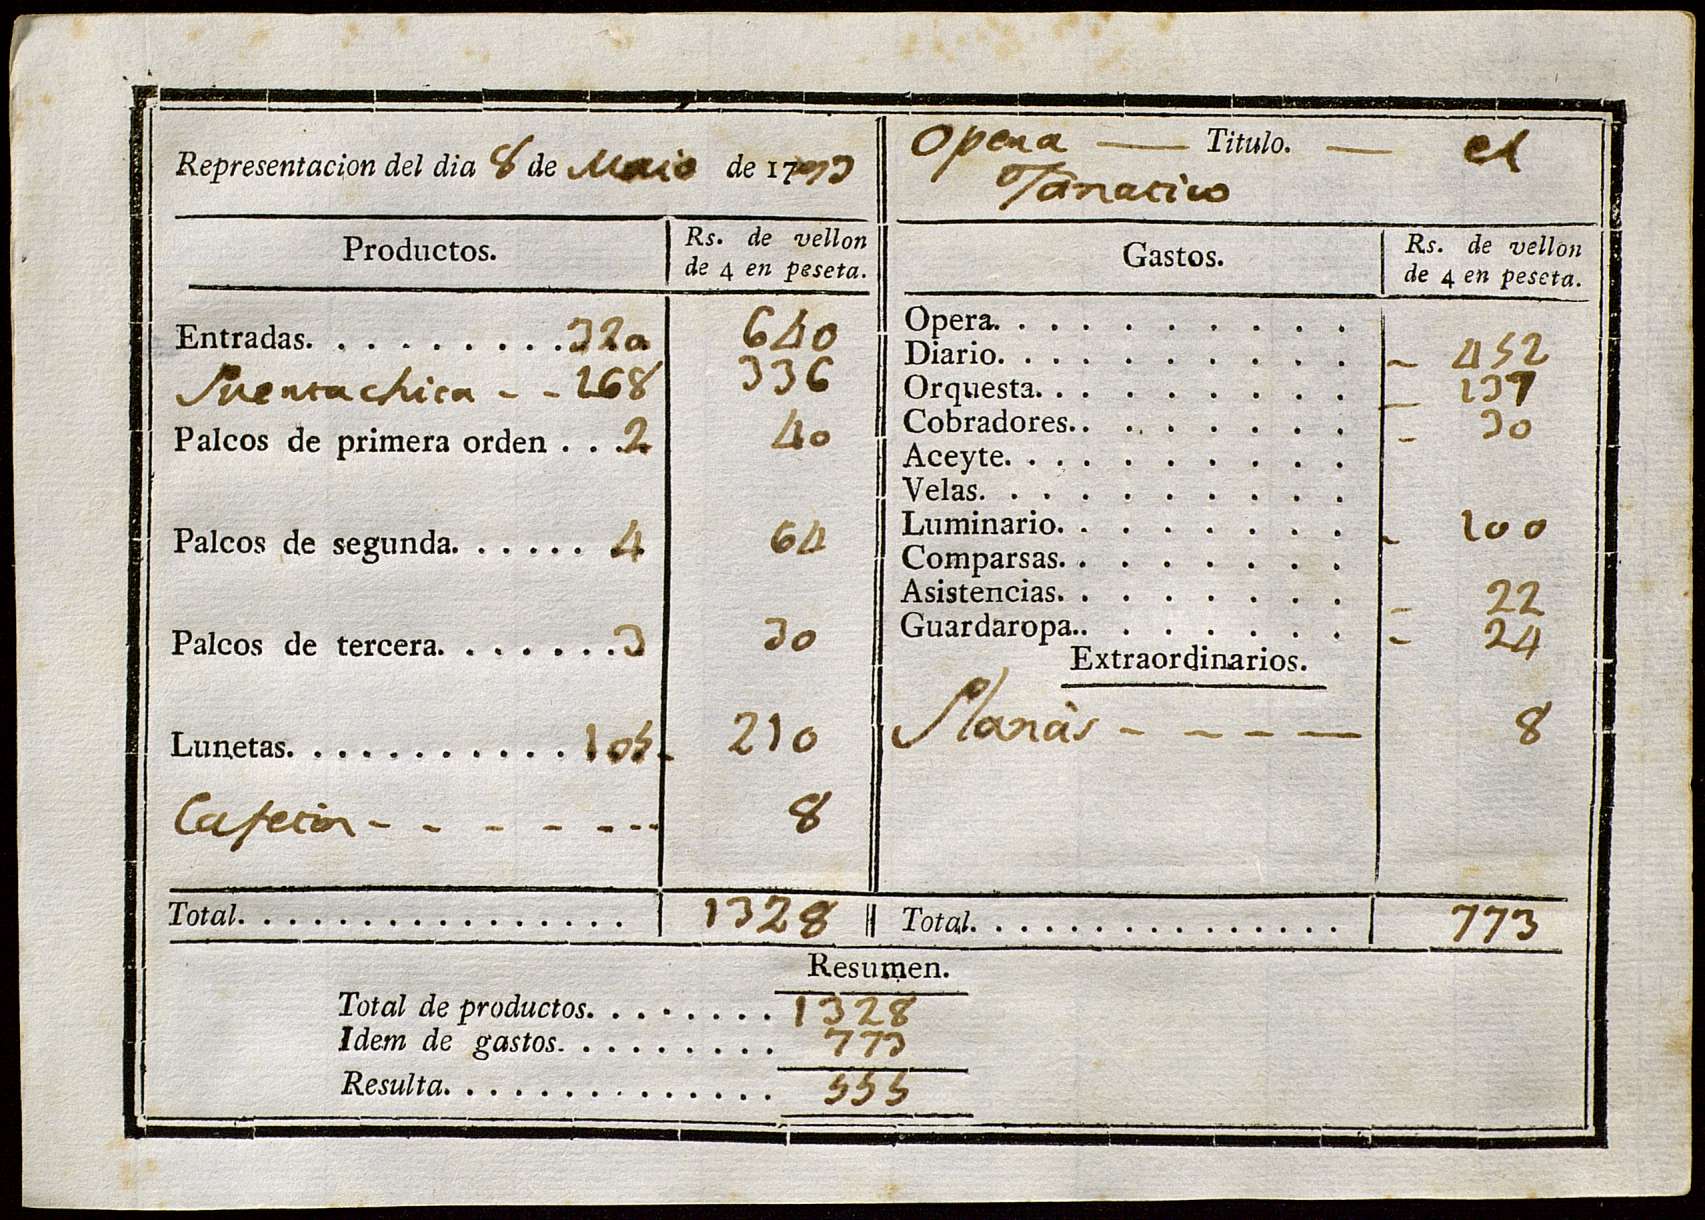 Representacion del dia 8 de Maio de 1793
Opera — Titulo. — el
Fanatico
Productos.
Rs. de vellon
de 4 en peseta.
Entradas. . . . . . . . . . 320 640
Puertachica - - 168 336
Palcos de primera orden . . . 2 40
Palcos de segunda. . . . . . 4 64
Palcos de tercera. . . . . . . 3 30
Lunetas. . . . . . . . . . . . 105 210
Cafetin - - - - - - - 8
Total. . . . . . . . . . . . . . . . . 1328
Gastos.
Rs. de vellon
de 4 en peseta.
Opera. . . . . . . . . .
Diario. . . . . . . . . . - 452
Orquesta. . . . . . . . . - 137
Cobradores. . . . . . . . - 30
Aceyte. . . . . . . . . .
Velas. . . . . . . . . .
Luminario. . . . . . . . - 100
Comparsas. . . . . . . .
Asistencias. . . . . . . . - 22
Guardaropa. . . . . . . . - 24
Extraordinarios.
Planàs - - - - — 8
Total. . . . . . . . . . . . . . . . 773
Resumen.
Total de productos. . . . . . . . 1328
Idem de gastos. . . . . . . . . 773
Resulta. . . . . . . . . . . . . . 555